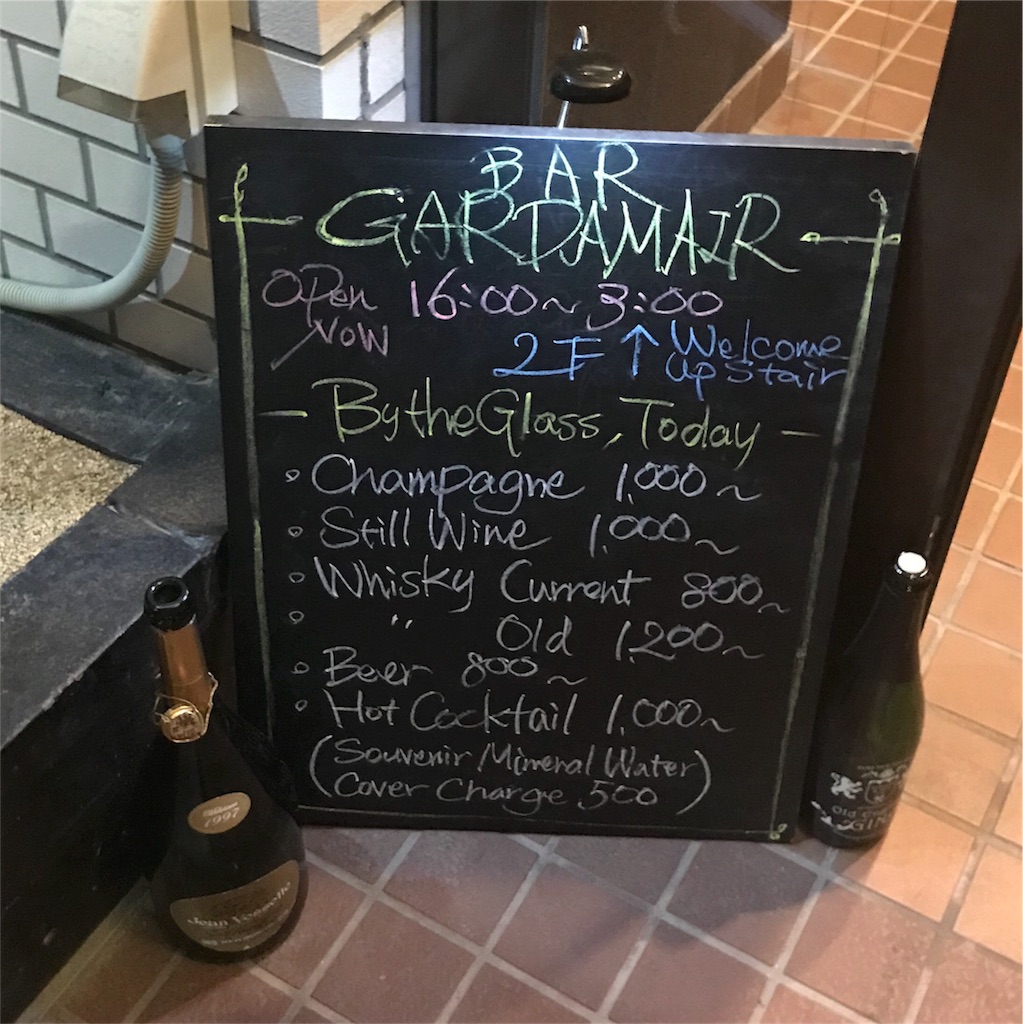 BAR
GARDAMAIR
OPen 16:00~3:00
NOW
2F ↑ Welcome
Up Stair
- By the Glass, Today -
◦ Champagne 1,000~
◦ Still Wine 1,000~
◦ Whisky Current 800~
◦ 〃 Old 1,200~
◦ Beer 800~
◦ Hot Cocktail 1,000~
(Souvenir/Mineral Water)
(Cover Charge 500)
1997
Jean Vesselle
Old
GIN